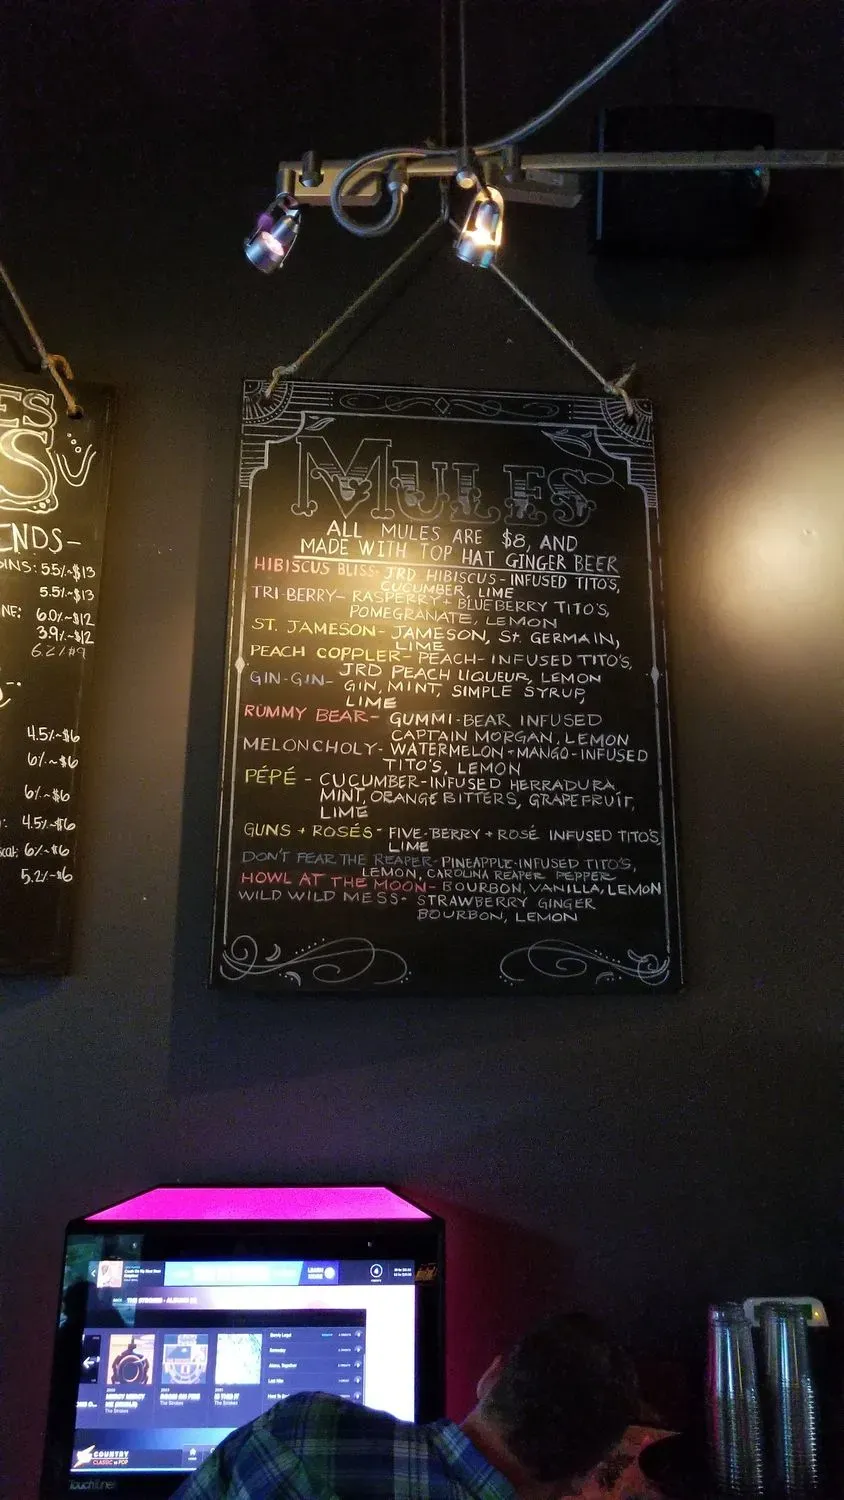 ES
S
ENDS-
INS: 5.5%~$13
5.5%~$13
NE: 6.0%~$12
3.9%~$12
4.5%~$6
6%~$6
6%~$6
4.5%~$6
6%~$6
5.2%~$6
MULES
ALL MULES ARE $8, AND
MADE WITH TOP HAT GINGER BEER
HIBISCUS BLISS- JRD HIBISCUS-INFUSED TITO'S,
CUCUMBER, LIME
TRI-BERRY- RASPBERRY + BLUEBERRY TITO'S,
POMEGRANATE, LEMON
ST. JAMESON- JAMESON, St. GERMAIN,
LIME
PEACH COPPLER- PEACH-INFUSED TITO'S,
JRD PEACH LIQUEUR, LEMON
GIN-GIN- GIN, MINT, SIMPLE SYRUP,
LIME
RUMMY BEAR- GUMMI-BEAR INFUSED
CAPTAIN MORGAN, LEMON
MELONCHOLY- WATERMELON-MANGO-INFUSED
TITO'S, LEMON
PÉPÉ - CUCUMBER-INFUSED HERRADURA,
MINT, ORANGE BITTERS, GRAPEFRUIT,
LIME
GUNS + ROSÉS- FIVE-BERRY + ROSÉ INFUSED TITO'S,
LIME
DON'T FEAR THE REAPER- PINEAPPLE-INFUSED TITO'S,
LEMON, CAROLINA REAPER PEPPER
HOWL AT THE MOON- BOURBON, VANILLA, LEMON
WILD WILD MESS- STRAWBERRY GINGER
BOURBON, LEMON
LEARN
MORE
THE STROKES - ALBUMS
Barely Legal
Someday
Alone, Together
Last Nite
IS THIS IT
The Strokes
ROOM ON FIRE
The Strokes
COUNTRY
CLASSIC to POP
TouchTunes